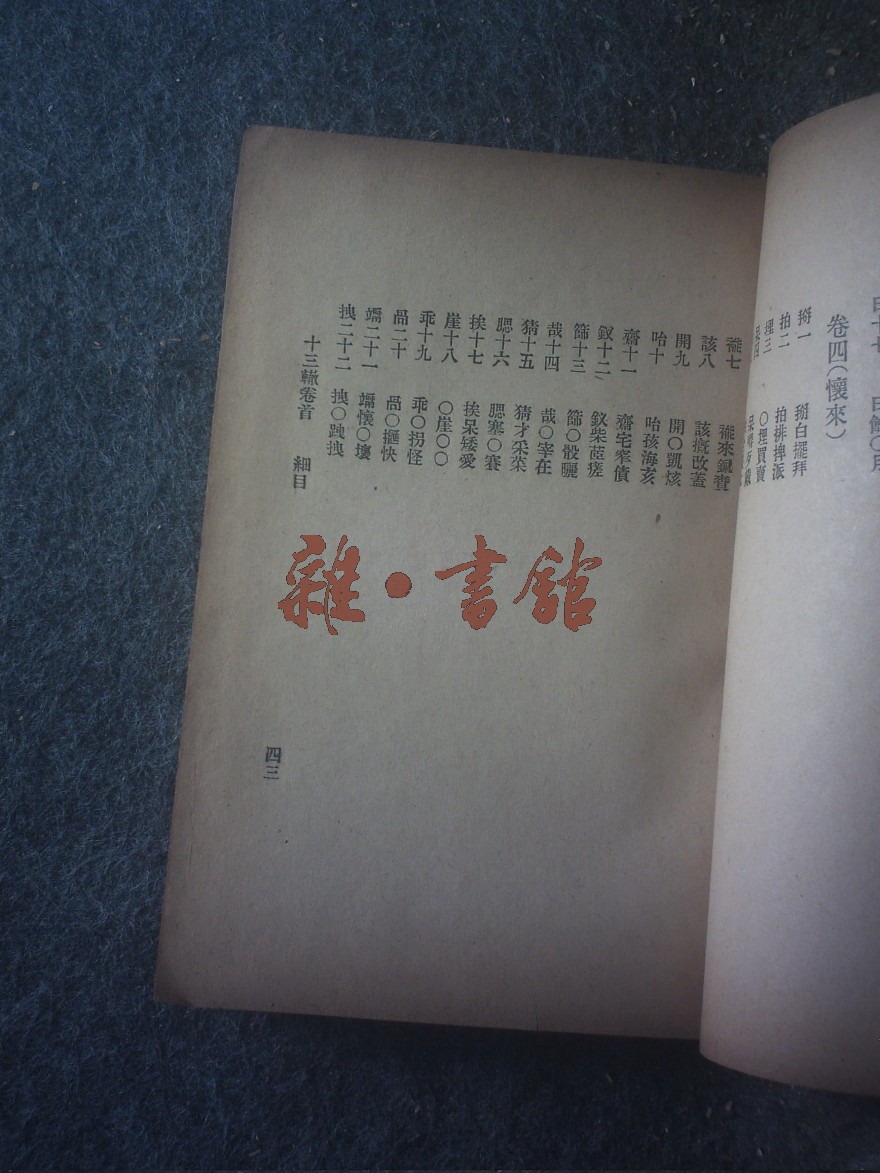 卷四(懷來)
掰一 掰白擺拜
拍二 拍排捭派
埋三 ○埋買賣
該八 該㮣改蓋
開九 開○凱炫
咍十 咍孩海亥
齋十一 齋宅窄債
釵十二 釵柴茝瘥
篩十三 篩○骰曬
哉十四 哉○宰在
猜十五 猜才采菜
腮十六 腮塞○賽
挨十七 挨呆矮愛
崖十八 ○崖○○
乖十九 乖○拐怪
咼二十 咼○擓快
竵二十一 竵懷○壞
拽二十二 拽○跩拽
十三轍卷首 細目
四三
雜·書館